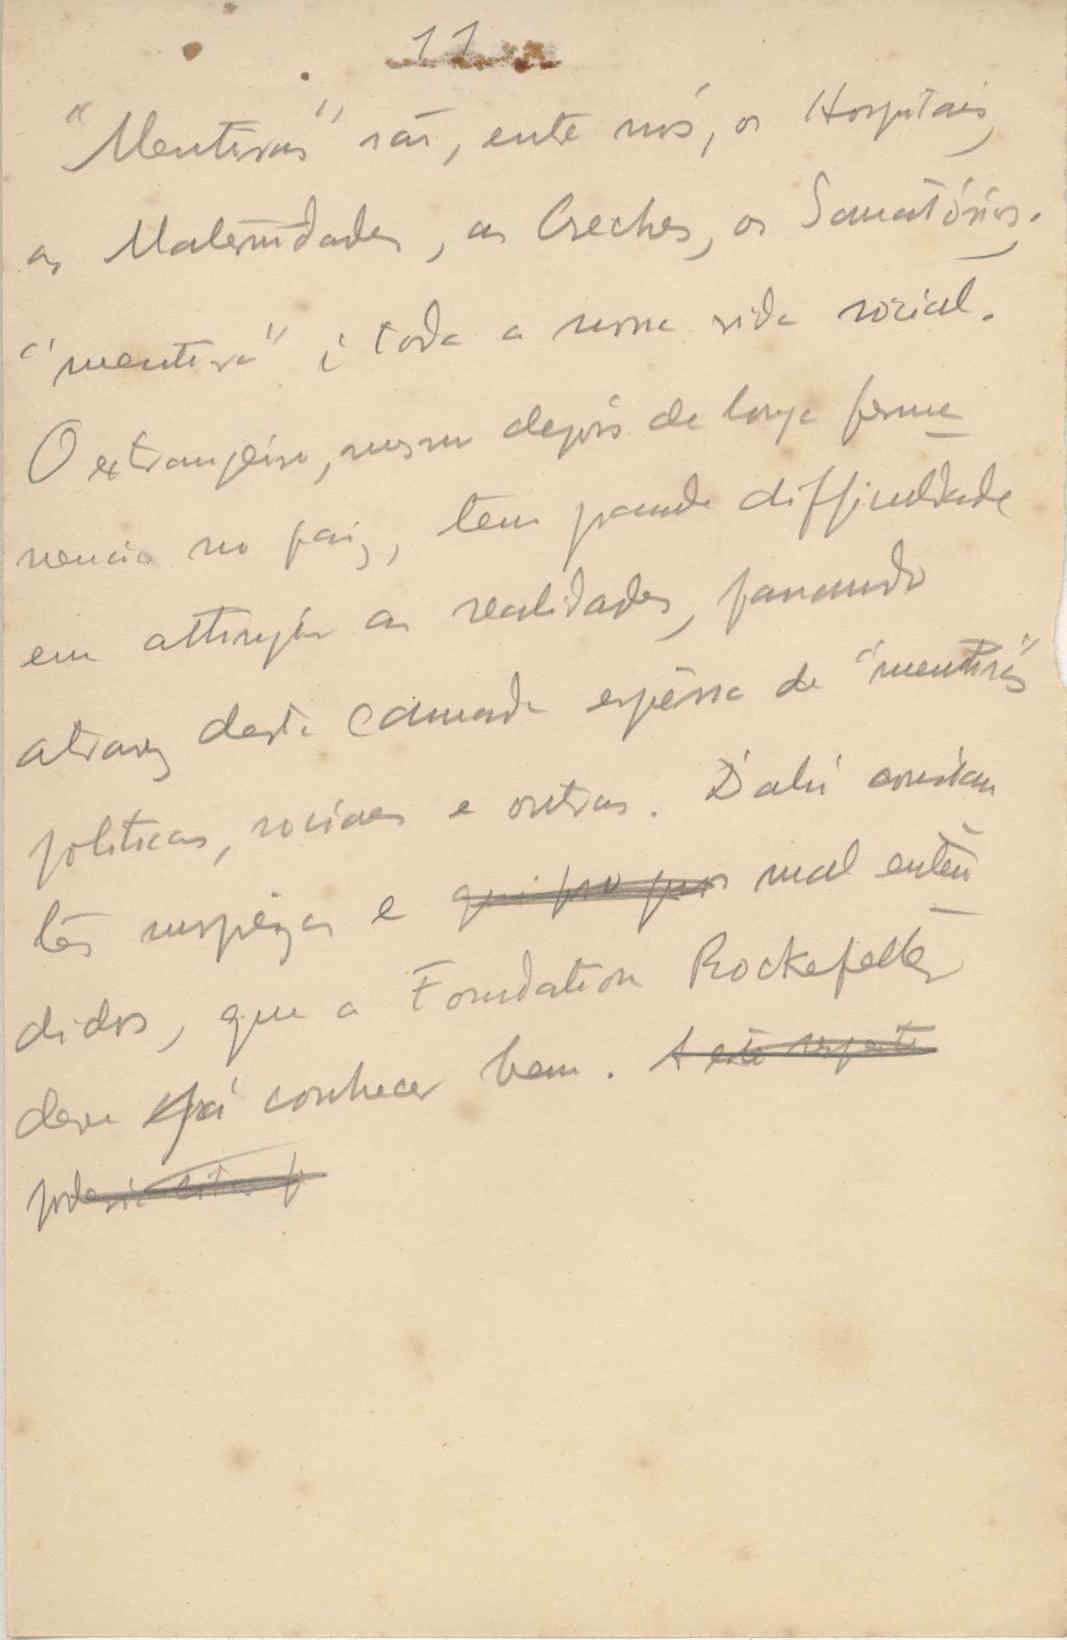 11
"Mentiras" são, entre nós, os Hospitais,
as Maternidades, as Creches, os Sanatórios.
"mentira" é toda a nossa vida social.
O extrangeiro, mesmo depois de longa perma
nencia no paiz, tem grande difficuldade
em attingir as realidades, passando
atravez desta camada espêssa de "mentiras"
politicas, sociaes e outras. D'ahi constan
tes surpêzas e qui pro quos mal enten
didos, que a Foundation Rockefeller
deve já conhecer bem. A este respeito
poderia citar p